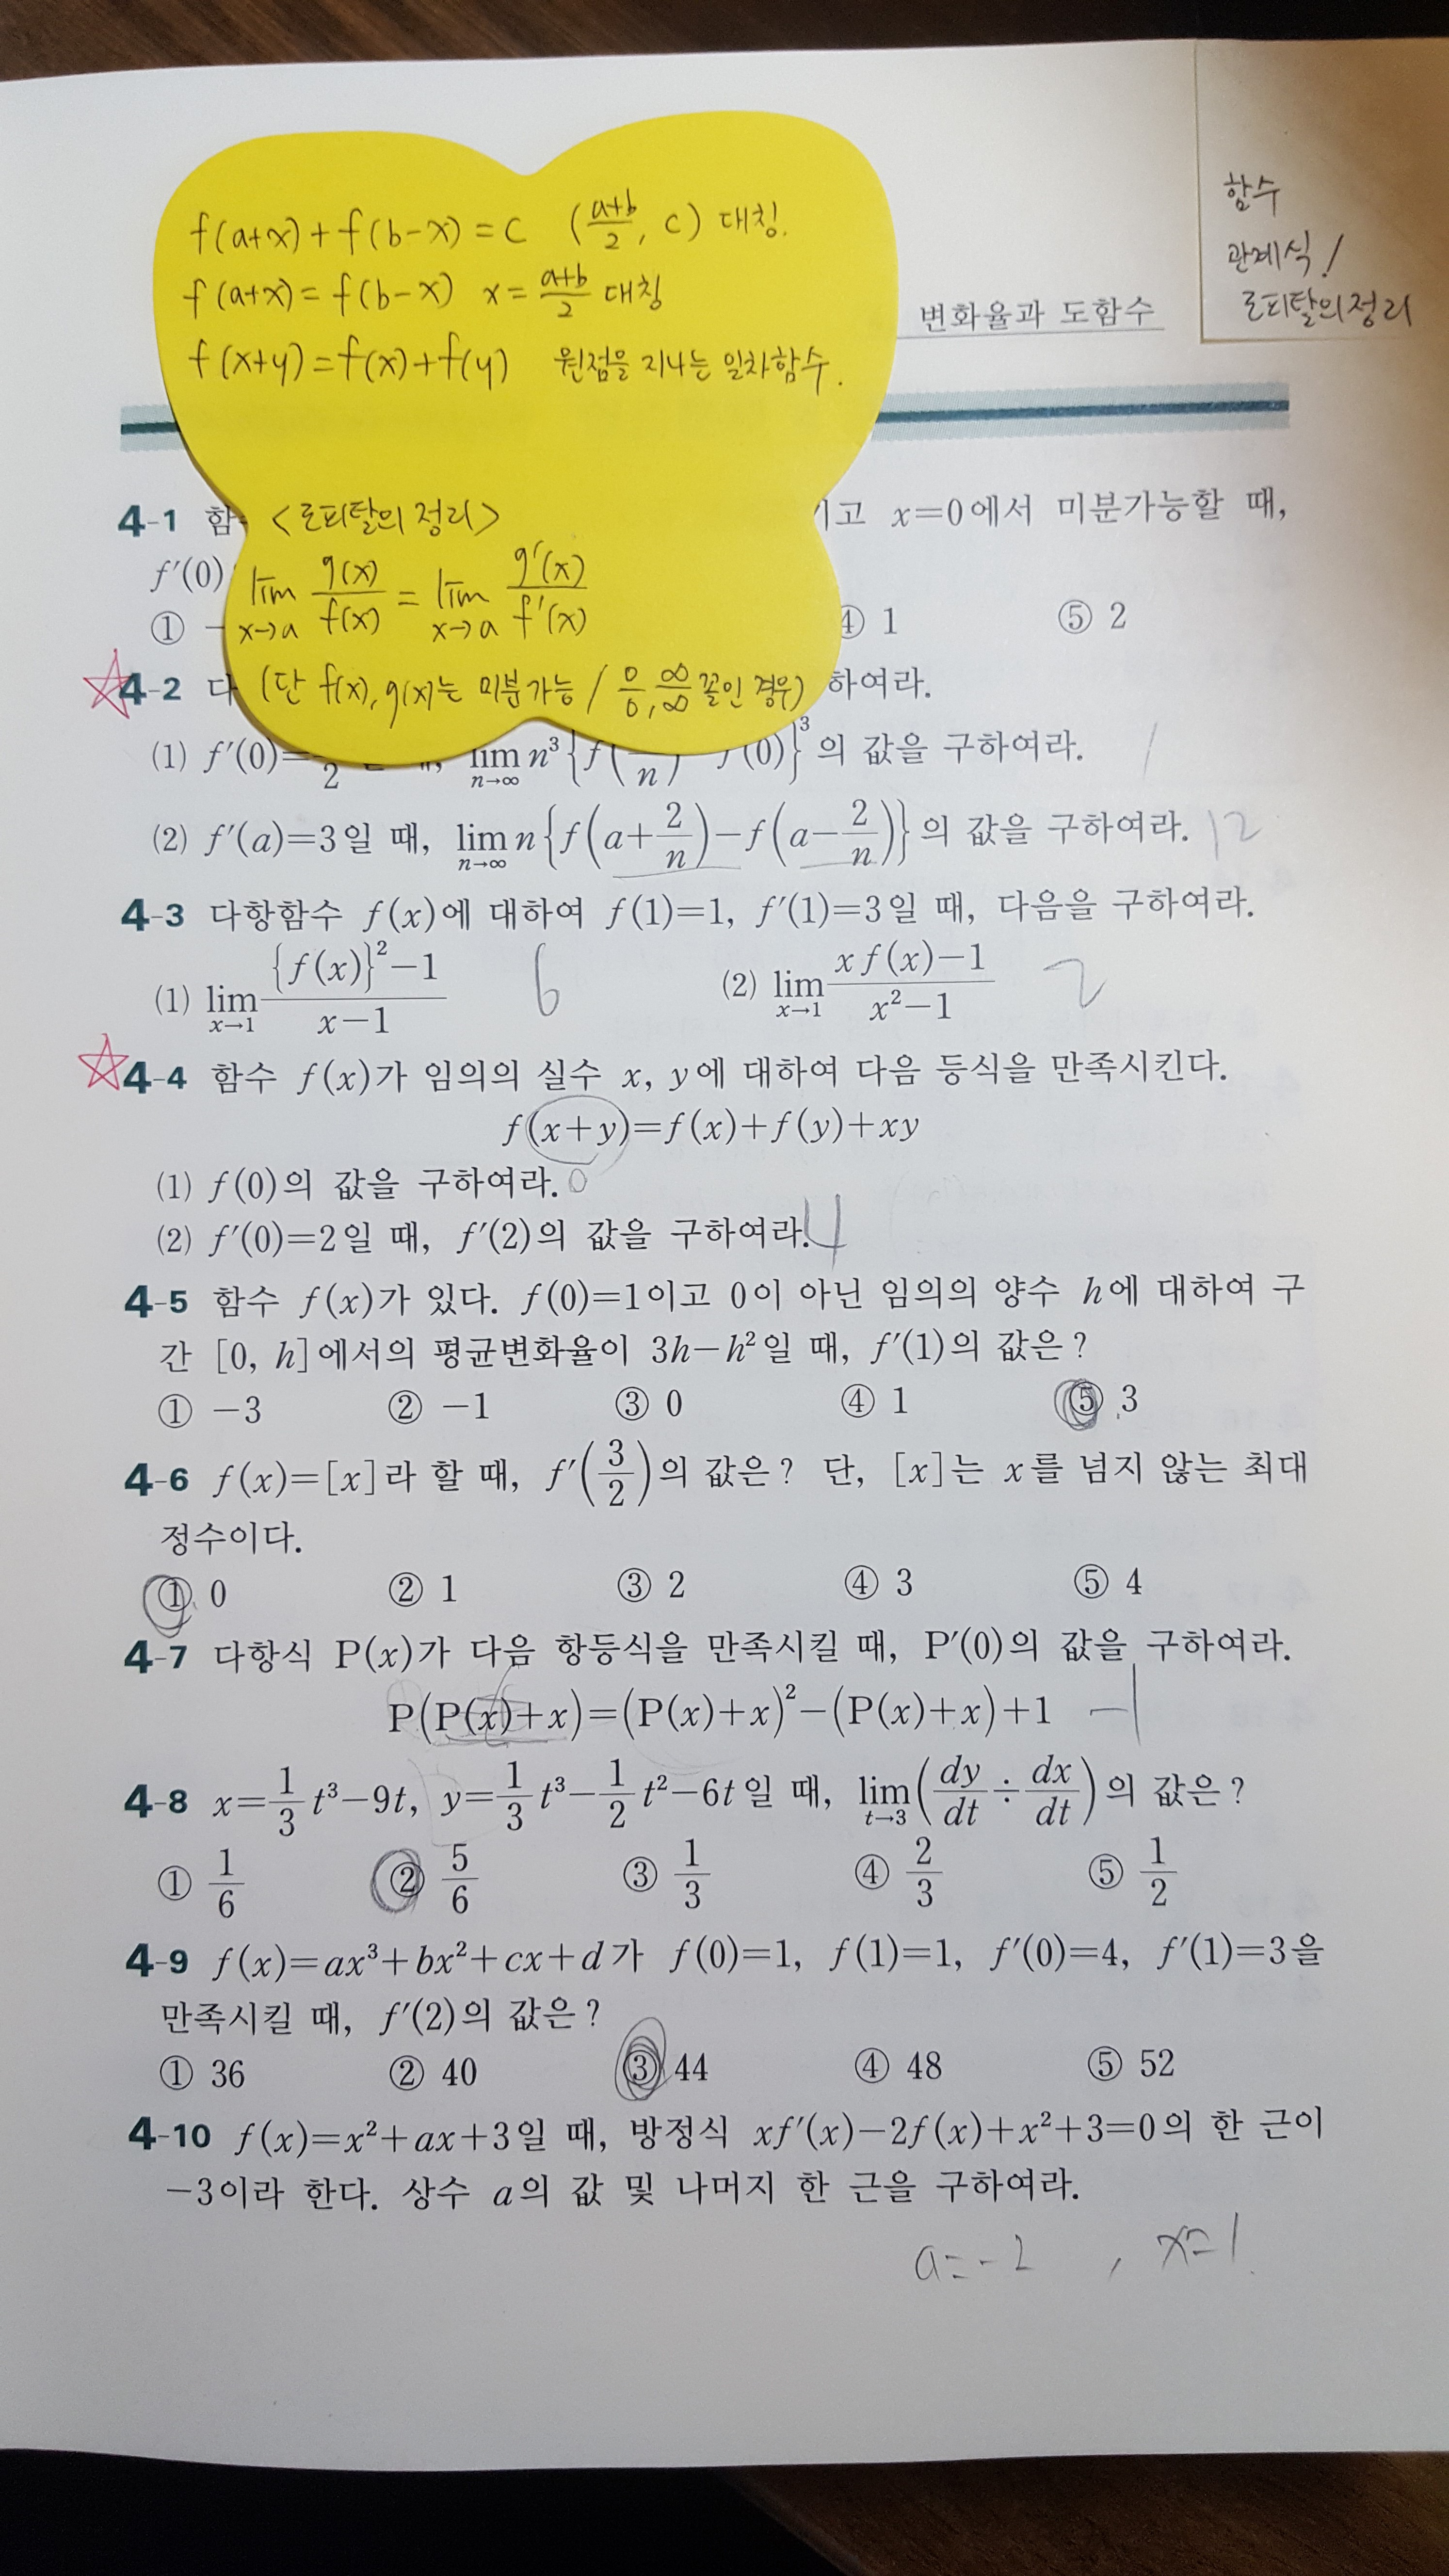 함수
관계식!
로피탈의정리
f(a+x)+f(b-x)=c (\frac{a+b}{2}, c) 대칭.
f(a+x)=f(b-x) x=\frac{a+b}{2} 대칭
f(x+y)=f(x)+f(y) 원점을 지나는 일차함수.
변화율과 도함수
<로피탈의 정리>
lim_{x→a} \frac{g(x)}{f(x)} = lim_{x→a} \frac{g'(x)}{f'(x)}
(단 f(x), g(x)는 미분가능 / \frac{0}{0}, \frac{∞}{∞} 꼴인 경우)
4-1 함 이고 x=0에서 미분가능할 때,
f′(0)
① ④ 1 ⑤ 2
4-2 다 하여라.
(1) f′(0)= lim_{n→∞} n³{f( f(0)}³의 값을 구하여라. 1
(2) f′(a)=3일 때, lim_{n→∞} n{f(a+\frac{2}{n})-f(a-\frac{2}{n})}의 값을 구하여라. 12
4-3 다항함수 f(x)에 대하여 f(1)=1, f′(1)=3일 때, 다음을 구하여라.
(1) lim_{x→1} \frac{{f(x)}²-1}{x-1} 6 (2) lim_{x→1} \frac{xf(x)-1}{x²-1} 2
4-4 함수 f(x)가 임의의 실수 x, y에 대하여 다음 등식을 만족시킨다.
f(x+y)=f(x)+f(y)+xy
(1) f(0)의 값을 구하여라. 0
(2) f′(0)=2일 때, f′(2)의 값을 구하여라. 4
4-5 함수 f(x)가 있다. f(0)=1이고 0이 아닌 임의의 양수 h에 대하여 구
간 [0, h]에서의 평균변화율이 3h-h²일 때, f′(1)의 값은?
① -3 ② -1 ③ 0 ④ 1 ⑤ 3
4-6 f(x)=[x]라 할 때, f′(\frac{3}{2})의 값은? 단, [x]는 x를 넘지 않는 최대
정수이다.
① 0 ② 1 ③ 2 ④ 3 ⑤ 4
4-7 다항식 P(x)가 다음 항등식을 만족시킬 때, P′(0)의 값을 구하여라.
P(P(x)+x)=(P(x)+x)²-(P(x)+x)+1 -1
4-8 x=\frac{1}{3}t³-9t, y=\frac{1}{3}t³-\frac{1}{2}t²-6t일 때, lim_{t→3}(\frac{dy}{dt}÷\frac{dx}{dt})의 값은?
① \frac{1}{6} ② \frac{5}{6} ③ \frac{1}{3} ④ \frac{2}{3} ⑤ \frac{1}{2}
4-9 f(x)=ax³+bx²+cx+d가 f(0)=1, f(1)=1, f′(0)=4, f′(1)=3을
만족시킬 때, f′(2)의 값은?
① 36 ② 40 ③ 44 ④ 48 ⑤ 52
4-10 f(x)=x²+ax+3일 때, 방정식 xf′(x)-2f(x)+x²+3=0의 한 근이
-3이라 한다. 상수 a의 값 및 나머지 한 근을 구하여라.
a=-2 , x=1